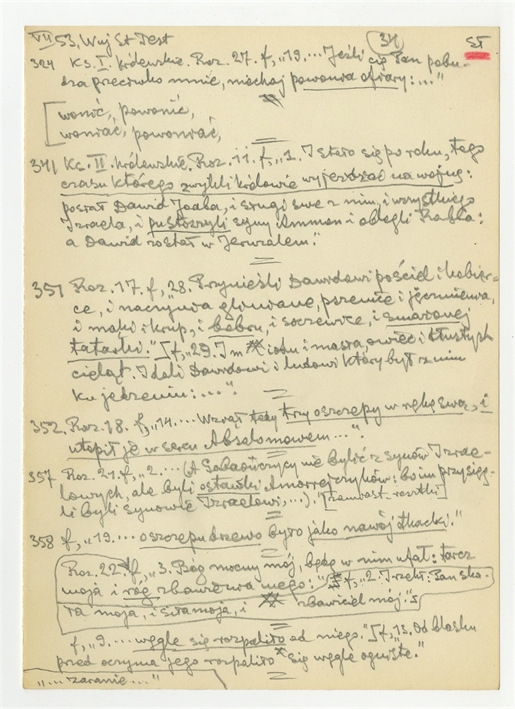 VII 53, Wuj St Test 31 ST
324 Ks. I. Królewskie. Roz. 27. f, "19.... Jeśli cię Pan pobu-
dza przeciwko mnie, niechaj powonia ofiary:..."
wonić, powonić,
woniać, powoniać,
341 Ks. II. Królewskie. Roz. 11. f, "1. I stało się po roku, tego
czasu którego zwykli królowie wyjeżdżać na wojnę:
posłał Dawid Joaba, i sługi swe z nim, i wszystkiego
Izraela, i pustoszyli syny Ammon i oblegli Rabba:
a Dawid został w Jeruzalem."
351 Roz. 17. f, "28. Przynieśli Dawidowi pościel i kobier-
ce, i naczynia gliniane, pszenice i jęczmienia,
i mąki i krup, i bobru, i soczewice, i smażonej
tatarki." f, "29. I m iodu i masła, owiec i tłustych
cieląt. I dali Dawidowi i ludowi który był z nim
ku jedzeniu:...."
352. Roz. 18. f, "14.... Wziął tedy trzy oszczepy w rękę swą, i
utopił je w sercu Absalomowem...."
357 Roz. 21. f, "2.... (A Gabaończycy nie byli ć z synów Izrae-
lowych, ale byli ostawki Amorrejczyków: bo im przysię-
gli byli synowie Izraelowi,...)." [zamiast - resztki]
358 f, "19.... oszczepu drzewo było jako nawój tkacki."
Roz. 22. f, "3. Bóg mocny mój, będę w nim ufał: tarcz
moja i róg zbawienia mego:" f, "2. I rzekł: Pan ska-
ła moja, i siła moja, i zbawiciel mój."
f, "9.... węgle się rozpaliło od niego." f, "13. Od blasku
przed oczyma jego rozpaliło się węgle ogniste."
"... zaranie...."